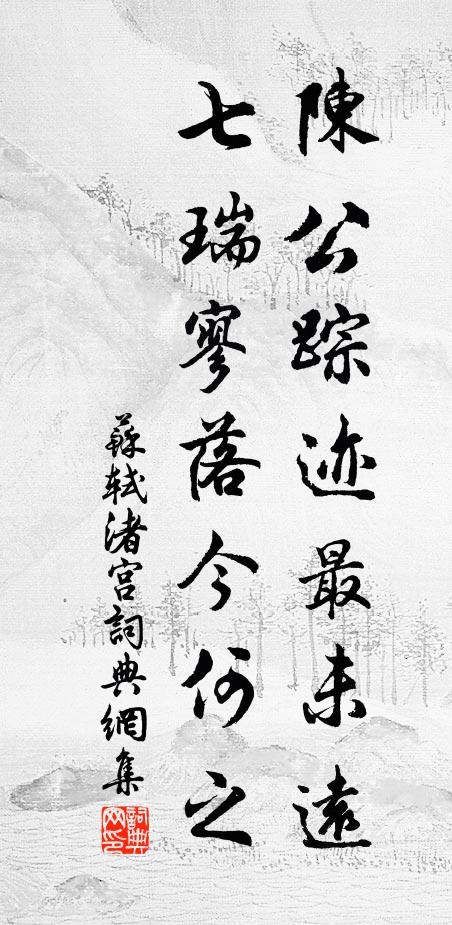 陳公踪迹最未遠
七瑞寥落今何之
蘇軾渚宮詞典網集
詞典
网印